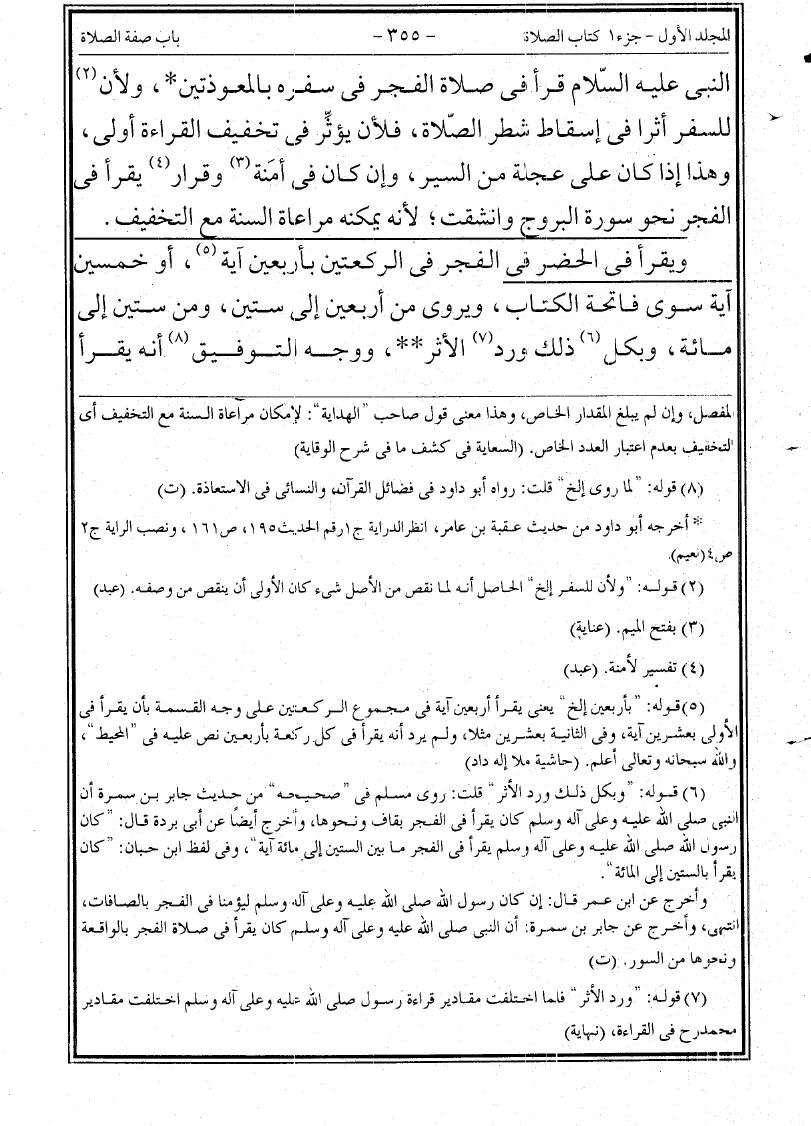 المجلد الأول - جزء١ كتاب الصلاة - ٣٥٥ - باب صفة الصلاة
النبى عليه السّلام قرأ فى صلاة الفجر فى سفره بالمعوذتين*، ولأن(٢)
للسفر أثرا فى إسقاط شطر الصّلاة، فلأن يؤثّر فى تخفيف القراءة أولى،
وهذا إذا كان على عجلة من السير، وإن كان فى أمَنة(٣) وقرار(٤) يقرأ فى
الفجر نحو سورة البروج وانشقت؛ لأنه يمكنه مراعاة السنة مع التخفيف.
ويقرأ فى الحضر فى الفجر فى الركعتين بأربعين آية(٥)، أو خمسين
آية سوى فاتحة الكتاب، ويروى من أربعين إلى ستين، ومن ستين إلى
مائة، وبكل(٦) ذلك ورد(٧) الأثر**، ووجه التوفيق(٨) أنه يقرأ
المفصل، وإن لم يبلغ المقدار الخاص، وهذا معنى قول صاحب "الهداية": لإمكان مراعاة السنة مع التخفيف أى
التخفيف بعدم اعتبار العدد الخاص. (السعاية فى كشف ما فى شرح الوقاية)
(٨) قوله: "لما روى إلخ" قلت: رواه أبو داود فى فضائل القرآن، والنسائى فى الاستعاذة. (ت)
* أخرجه أبو داود من حديث عقبة بن عامر، انظرالدراية ج١رقم الحديث١٩٥، ص١٦١، ونصب الراية ج٢
ص٤(نعيم).
(٢) قوله: "ولأن للسفر إلخ" الحاصل أنه لما نقص من الأصل شىء كان الأولى أن ينقص من وصفه. (عبد)
(٣) بفتح الميم. (عناية)
(٤) تفسير لأمنة. (عبد)
(٥)قوله: "بأربعين إلخ" يعنى يقرأ أربعين آية فى مجموع الركعتين على وجه القسمة بأن يقرأ فى
الأولى بعشرين آية، وفى الثانية بعشرين مثلا، ولم يرد أنه يقرأ فى كل ركعة بأربعين نص عليه فى "المحيط"،
والله سبحانه وتعالى أعلم. (حاشية ملا إله داد)
(٦) قوله: "وبكل ذلك ورد الأثر" قلت: روى مسلم فى "صحيحه" من حديث جابر بن سمرة أن
النبى صلى الله عليه وعلى آله وسلم كان يقرأ فى الفجر بقاف ونحوها، وأخرج أيضًا عن أبى بردة قال: "كان
رسول الله صلى الله عليه وعلى آله وسلم يقرأ فى الفجر ما بين الستين إلى مائة آية"، وفى لفظ ابن حبان: "كان
يقرأ بالستين إلى المائة".
وأخرج عن ابن عمر قال: إن كان رسول الله صلى الله عليه وعلى آله وسلم ليؤمنا فى الفجر بالصافات،
انتهى، وأخرج عن جابر بن سمرة: أن النبى صلى الله عليه وعلى آله وسلم كان يقرأ فى صلاة الفجر بالواقعة
ونحوها من السور. (ت)
(٧) قوله: "ورد الأثر" فلما اختلفت مقادير قراءة رسول صلى الله عليه وعلى آله وسلم اختلفت مقادير
محمدرح فى القراءة، (نهاية)